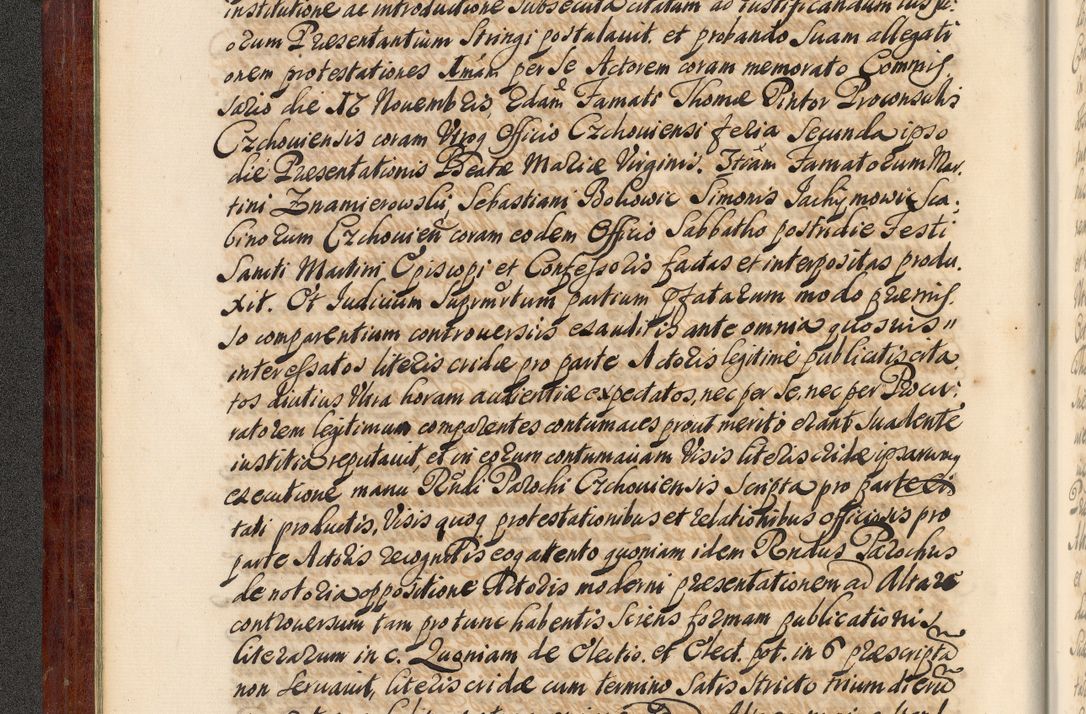 institutione ac introductione subsecuta citatum ad iustificandum ius p:
orum Præsentantium Stringi postulavit. et probando Suam allegati
onem protestationes 1mam per Se Actorem coram memorato Commis,
sario die 17 Novembris, 2dam Famati Thomæ Pintor Proconsulis
Czchoviensis coram Vtroq Officio Czchoviensi feria Secunda ipso
die Præsentationis Beatæ Mariæ Virginis. 3tiam Famatorum Mar,
tini Znamierowski, Sebastiani Bohowic Simonis Jachymowic Sca,
binorum Czchovien coram eodem Officio Sabbatho postridie Festi
Sancti Martini Episcopi et Confessoris factas et interpositas produ,
xit. Et Iudicium Suprmtum partium pfatarum modo præmis,
so comparentium controversiis exauditis ante omnia quosvis "
interessatos literis cridæ pro parte Actoris legitime publicatis cita,
tos diutius Vna horam audientiæ expectatos, nec per Se, nec per Procu,
ratorem legitimum comparentes contumaces prout merito erant Suadente
iustitia reputavit, et in eorum contumaciam Visis literis cridæ ipsarumq
executione manu Rndi Parochi Czchoviensis Scripta pro parte
tati productis, Visis quoq protestationibus et relationibus officiosis pro
parte Actoris recognitis eoq attento quoniam idem Rndus Parochus
de notoria oppositione Actoris moderni præsentationem ad Altare
controversum tam pro tunc habentis Sciens formam publicationis
literarum in c. Quoniam de Electio. et Elect. pot. in 6 præscripta
non Servavit, literis cridæ cum termino Satis Stricto trium dierum